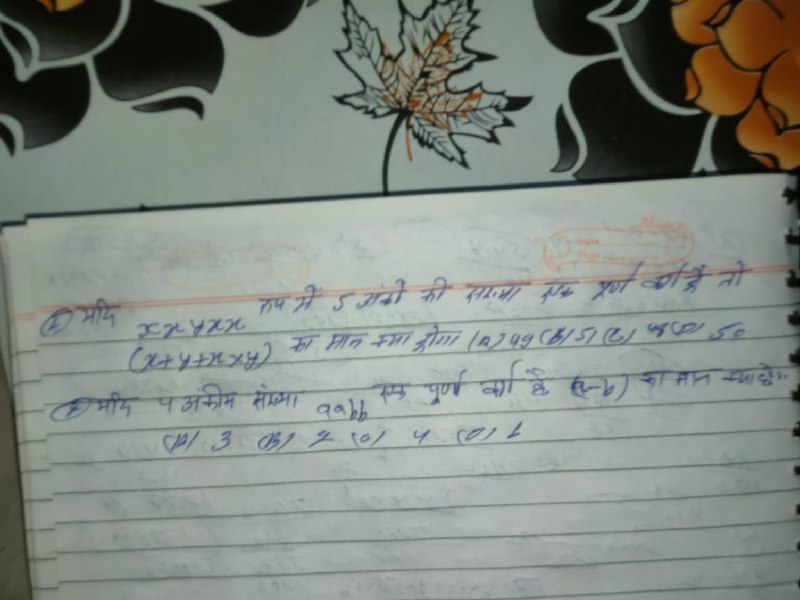 ② यदि xxyxx रूप में 5 अंको की संख्या एक पूर्ण वर्ग है तो
(x+y+x×y) का मान क्या होगा (A) 49 (B) 51 (C) 48 (D) 50
③ यदि 4 अंकीय संख्या aabb एक पूर्ण वर्ग है (a-b) का मान क्या
(A) 3 (B) 2 (C) 4 (D) 1